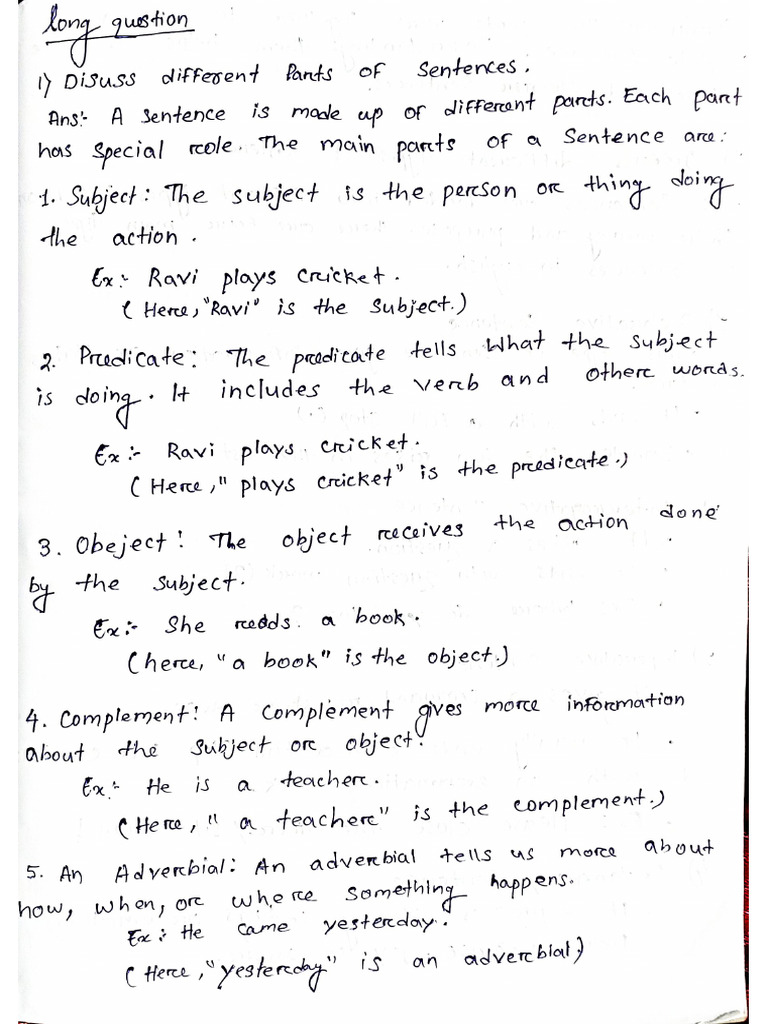 long question
1) Disuss different Parts of Sentences.
Ans:- A sentence is made up of different parts. Each part
has special role. The main parts of a Sentence are:
1. Subject: The subject is the person or thing doing
the action.
Ex:- Ravi plays cricket.
( Here, "Ravi" is the subject.)
2. Predicate: The predicate tells what the subject
is doing. It includes the verb and other words.
Ex:- Ravi plays cricket.
( Here, "plays cricket" is the predicate.)
3. Obeject: The object receives the action done
by the subject.
Ex:- She reads a book.
(here, "a book" is the object.)
4. Complement: A complement gives more information
about the subject or object.
Ex:- He is a teacher.
(Here, "a teacher" is the complement.)
5. An Adverbial: An adverbial tells us more about
how, when, or where something happens.
Ex:- He came yesterday.
(Here, "yesterday" is an adverbial)